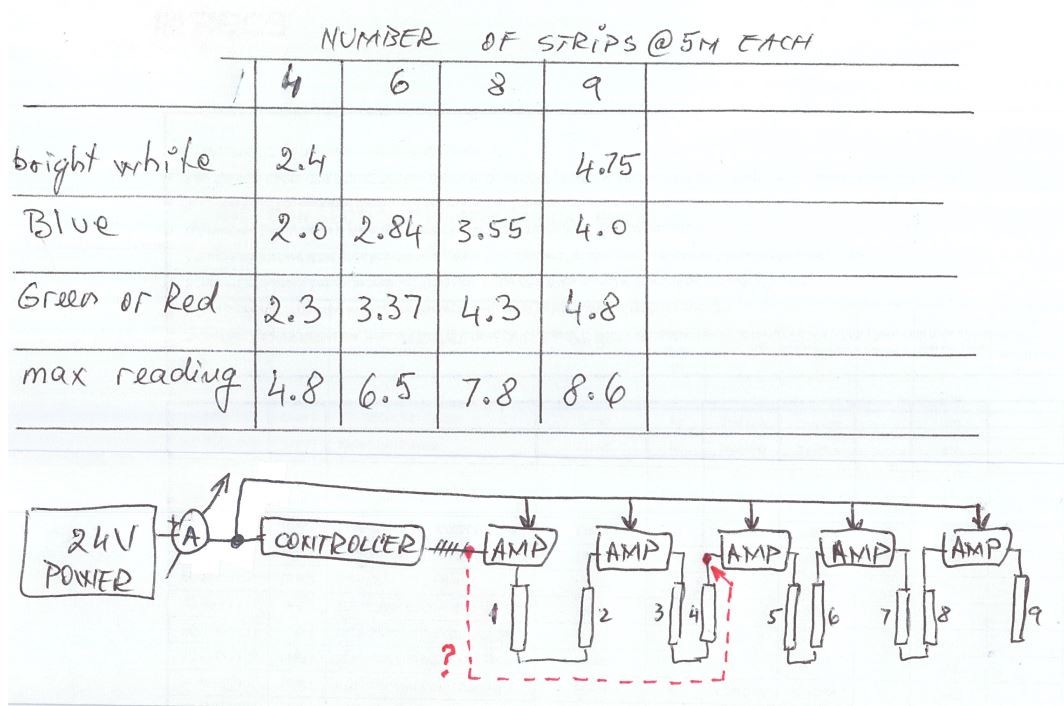 NUMBER OF STRIPS @ 5M EACH
4 6 8 9
bright white 2.4 4.75
Blue 2.0 2.84 3.55 4.0
Green or Red 2.3 3.37 4.3 4.8
max reading 4.8 6.5 7.8 8.6
24V POWER
+ A
CONTROLLER
AMP AMP AMP AMP AMP
1 2 3 4 5 6 7 8 9
?